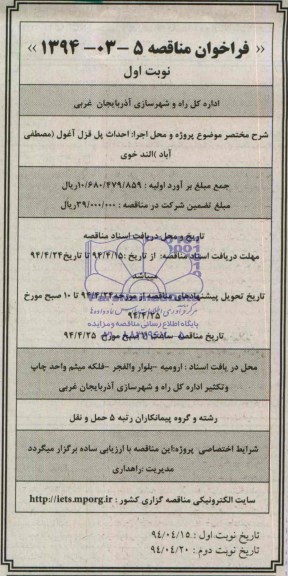 « فراخوان مناقصه ۵ -۰۳- ۱۳۹۴ »
نوبت اول
اداره کل راه و شهرسازی آذربایجان غربی
شرح مختصر موضوع پروژه و محل اجرا: احداث پل قزل آغول (مصطفی
آباد )الند خوی
جمع مبلغ بر آورد اولیه : ۱۰/۶۸۰/۴۷۹/۸۵۹ریال
مبلغ تضمین شرکت در مناقصه : ۳۹/۰۰۰/۰۰۰ریال
تاریخ و محل دریافت اسناد مناقصه
مهلت دریافت اسناد مناقصه: از تاریخ :۹۴/۴/۱۵ تا تاریخ۹۴/۴/۲۴
میباشد
تاریخ تحویل پیشنهادهای مناقصه از مورخه۹۴/۴/۲۴ تا ۱۰ صبح مورخ
۹۴/۴/۲۵
پایگاه اطلاع رسانی مناقصه و مزایده
تاریخ مناقصه ساعت ۱۱ صبح مورخ ۹۴/۴/۲۵
محل در یافت اسناد : ارومیه -بلوار والفجر -فلکه میثم واحد چاپ
وتکثیر اداره کل راه و شهرسازی آذربایجان غربی
رشته و گروه پیمانکاران رتبه ۵ حمل و نقل
شرایط اختصاصی پروژه:این مناقصه با ارزیابی ساده برگزار میگردد
مدیریت :راهداری
سایت الکترونیکی مناقصه گزاری کشور : http://iets.mporg.ir
تاریخ نوبت اول : ۹۴/۰۴/۱۵
تاریخ نوبت دوم : ۹۴/۰۴/۲۰